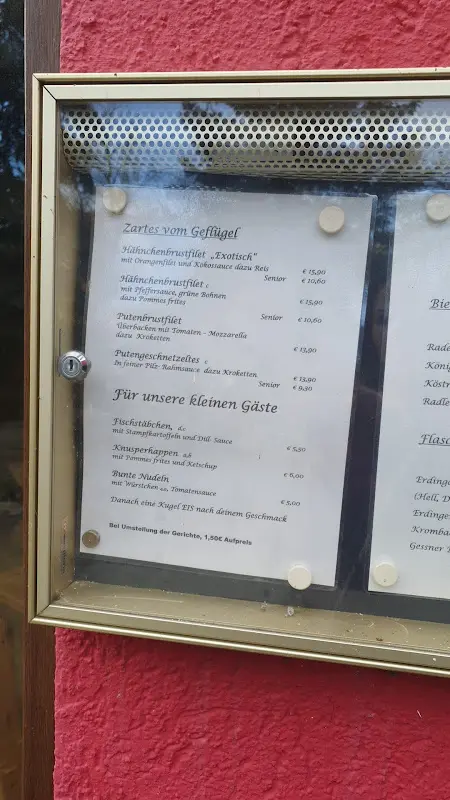 Zartes vom Geflügel
Hähnchenbrustfilet „Exotisch“
mit Orangenfilet und Kokossauce dazu Reis € 15,90
Senior € 10,60
Hähnchenbrustfilet c
mit Pfeffersauce, grüne Bohnen
dazu Pommes frites € 15,90
Senior € 10,60
Putenbrustfilet
Überbacken mit Tomaten - Mozzarella
dazu Kroketten € 13,90
Putengeschnetzeltes c
In feiner Pilz- Rahmsauce dazu Kroketten € 13,90
Senior € 9,30
Für unsere kleinen Gäste
Fischstäbchen,
mit Stampfkartoffeln und Dill- Sauce € 5,50
Knusperhappen a,b
mit Pommes frites und Ketschup € 6,00
Bunte Nudeln
mit Würstchen Tomatensauce € 5,00
Danach eine Kugel EIS nach deinem Geschmack
Bei Umstellung der Gerichte, 1,50€ Aufpreis
Bie
Rade
König
Köstr
Radle
Flasc
Erdinge
(Hell, D
Erdinge
Kromba
Gessner